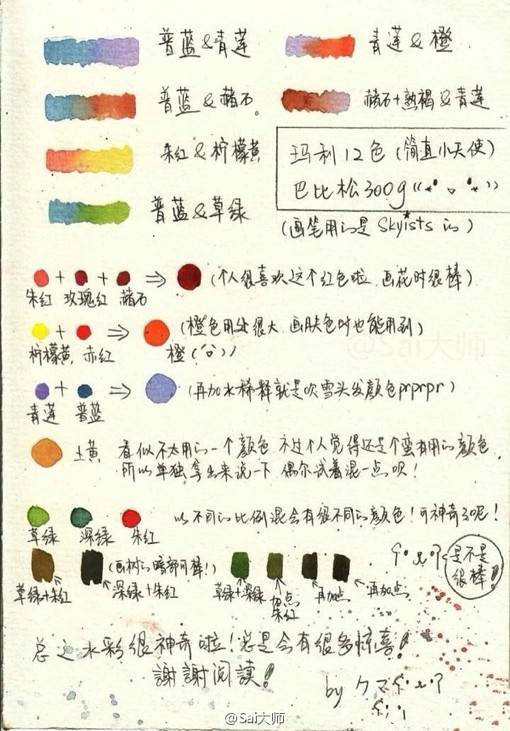 普蓝&青莲
青莲&橙
普蓝&赭石
赭石+熟褐&青莲
朱红&柠檬黄
玛利12色(简直小天使)
巴比松300g
普蓝&草绿
(画笔用的是Skyists的)
朱红 + 玫瑰红 + 赭石 ⇒ (个人很喜欢这个红色啦 画花时很棒)
柠檬黄 + 赤红 ⇒ 橙 (橙色用处很大 画肤色时也能用到)
青莲 + 普蓝 ⇒ (再加水稀释就是吹雪头发颜色prprpr)
土黄 看似不太用的一个颜色 不过个人觉得还是个蛮有用的颜色
所以单独拿出来说一下 偶尔试着混一点呗!
草绿 深绿 朱红 以不同的比例混会有很不同的颜色!可神奇了呢!
是不是
很棒!
(画树的暗部可棒!)
草绿+朱红 深绿+朱红 草绿+深绿 加点朱红 再加点 再加点
总之水彩很神奇啦!总是会有很多惊喜!
謝謝阅读!
by クマ
@Sai大师
@Sai大师